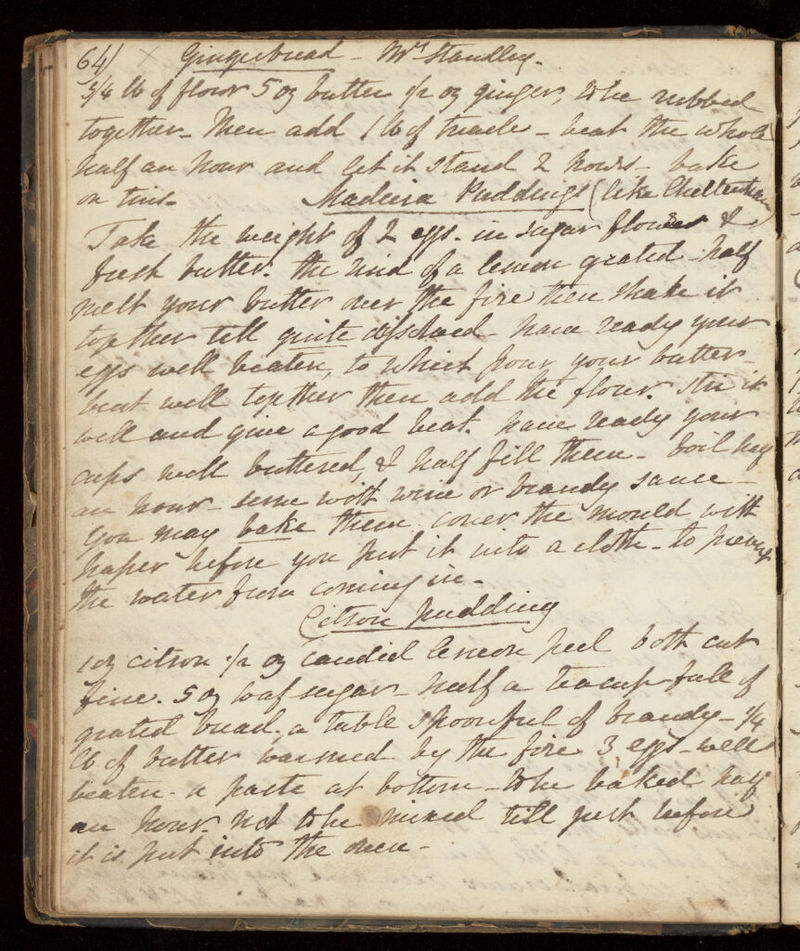 64/ × Gingerbread - Mrs Standley.
3/4 lb of flour 5 oz butter 1/2 oz ginger, to be rubbed
together - then add 1 lb of treacle - beat the whole
half an hour and let it stand 2 hours - bake
on tins -
Madeira Puddings (like Cheltenham)
Take the weight of 2 eggs - in sugar flour &
fresh butter. the rind of a lemon grated - half
melt your butter over the fire then shake it
together till quite dissolved - have ready your
eggs well beaten, to which pour your butter -
beat well together then add the flour. stir it
well and give a good beat. have ready your
cups well buttered, & half fill them - boil half
an hour - serve with wine or brandy sauce -
You may bake them. cover the mould with
paper before you put it into a cloth - to prevent
the water from coming in -
Citron pudding
1 oz citron 1/2 oz candied lemon peel both cut
fine. 5 oz loaf sugar - half a teacup full of
grated bread. a table spoonful of brandy - 1/4
lb of butter warmed by the fire 3 eggs - well
beaten - a paste at bottom - to be baked half
an hour. not to be mixed till just before
it is put into the oven -